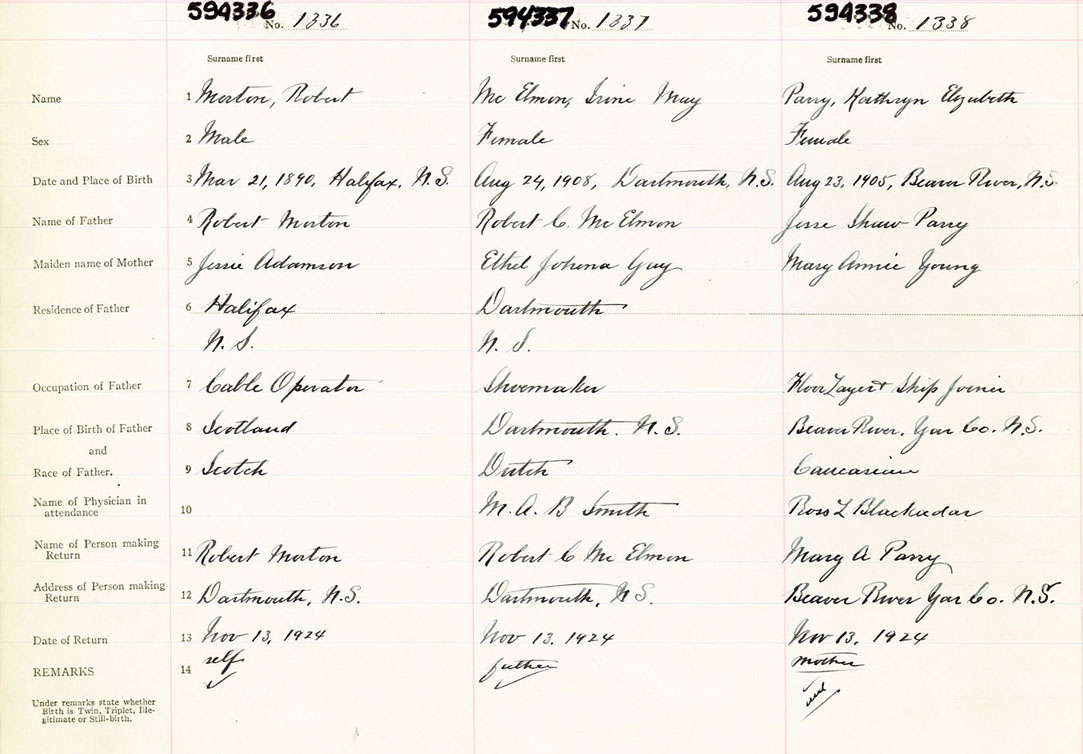 594336 No. 1336 594337 No. 1337 594338 No. 1338
Surname first Surname first Surname first
Name 1 Morton, Robert Mc Elmon, Irine May Parry, Kathryn Elizabeth
Sex 2 Male Female Female
Date and Place of Birth 3 Mar 21, 1890, Halifax, N.S. Aug 24, 1908, Dartmouth, N.S. Aug 23, 1905, Beaver River, N.S.
Name of Father 4 Robert Morton Robert C. Mc Elmon Jesse Shaw Parry
Maiden name of Mother 5 Jessie Adamson Ethel Johena Gay Mary Annie Young
Residence of Father 6 Halifax Dartmouth
N. S. N. S.
Occupation of Father 7 Cable Operator Shoemaker Floor Layer & Ship Joiner
Place of Birth of Father 8 Scotland Dartmouth. N.S. Beaver River, Yar Co. N.S.
and
Race of Father. 9 Scotch Dutch Caucasian
Name of Physician in
attendance 10 M. A. B Smith Ross L Blackadar
Name of Person making
Return 11 Robert Morton Robert C Mc Elmon Mary A Parry
Address of Person making
Return 12 Dartmouth, N.S. Dartmouth, N S. Beaver River Yar Co. N.S.
Date of Return 13 Nov 13, 1924 Nov 13. 1924 Nov 13, 1924
REMARKS 14 self father mother
Under remarks state whether
Birth is Twin, Triplet, Ille-
gitimate or Still-birth.